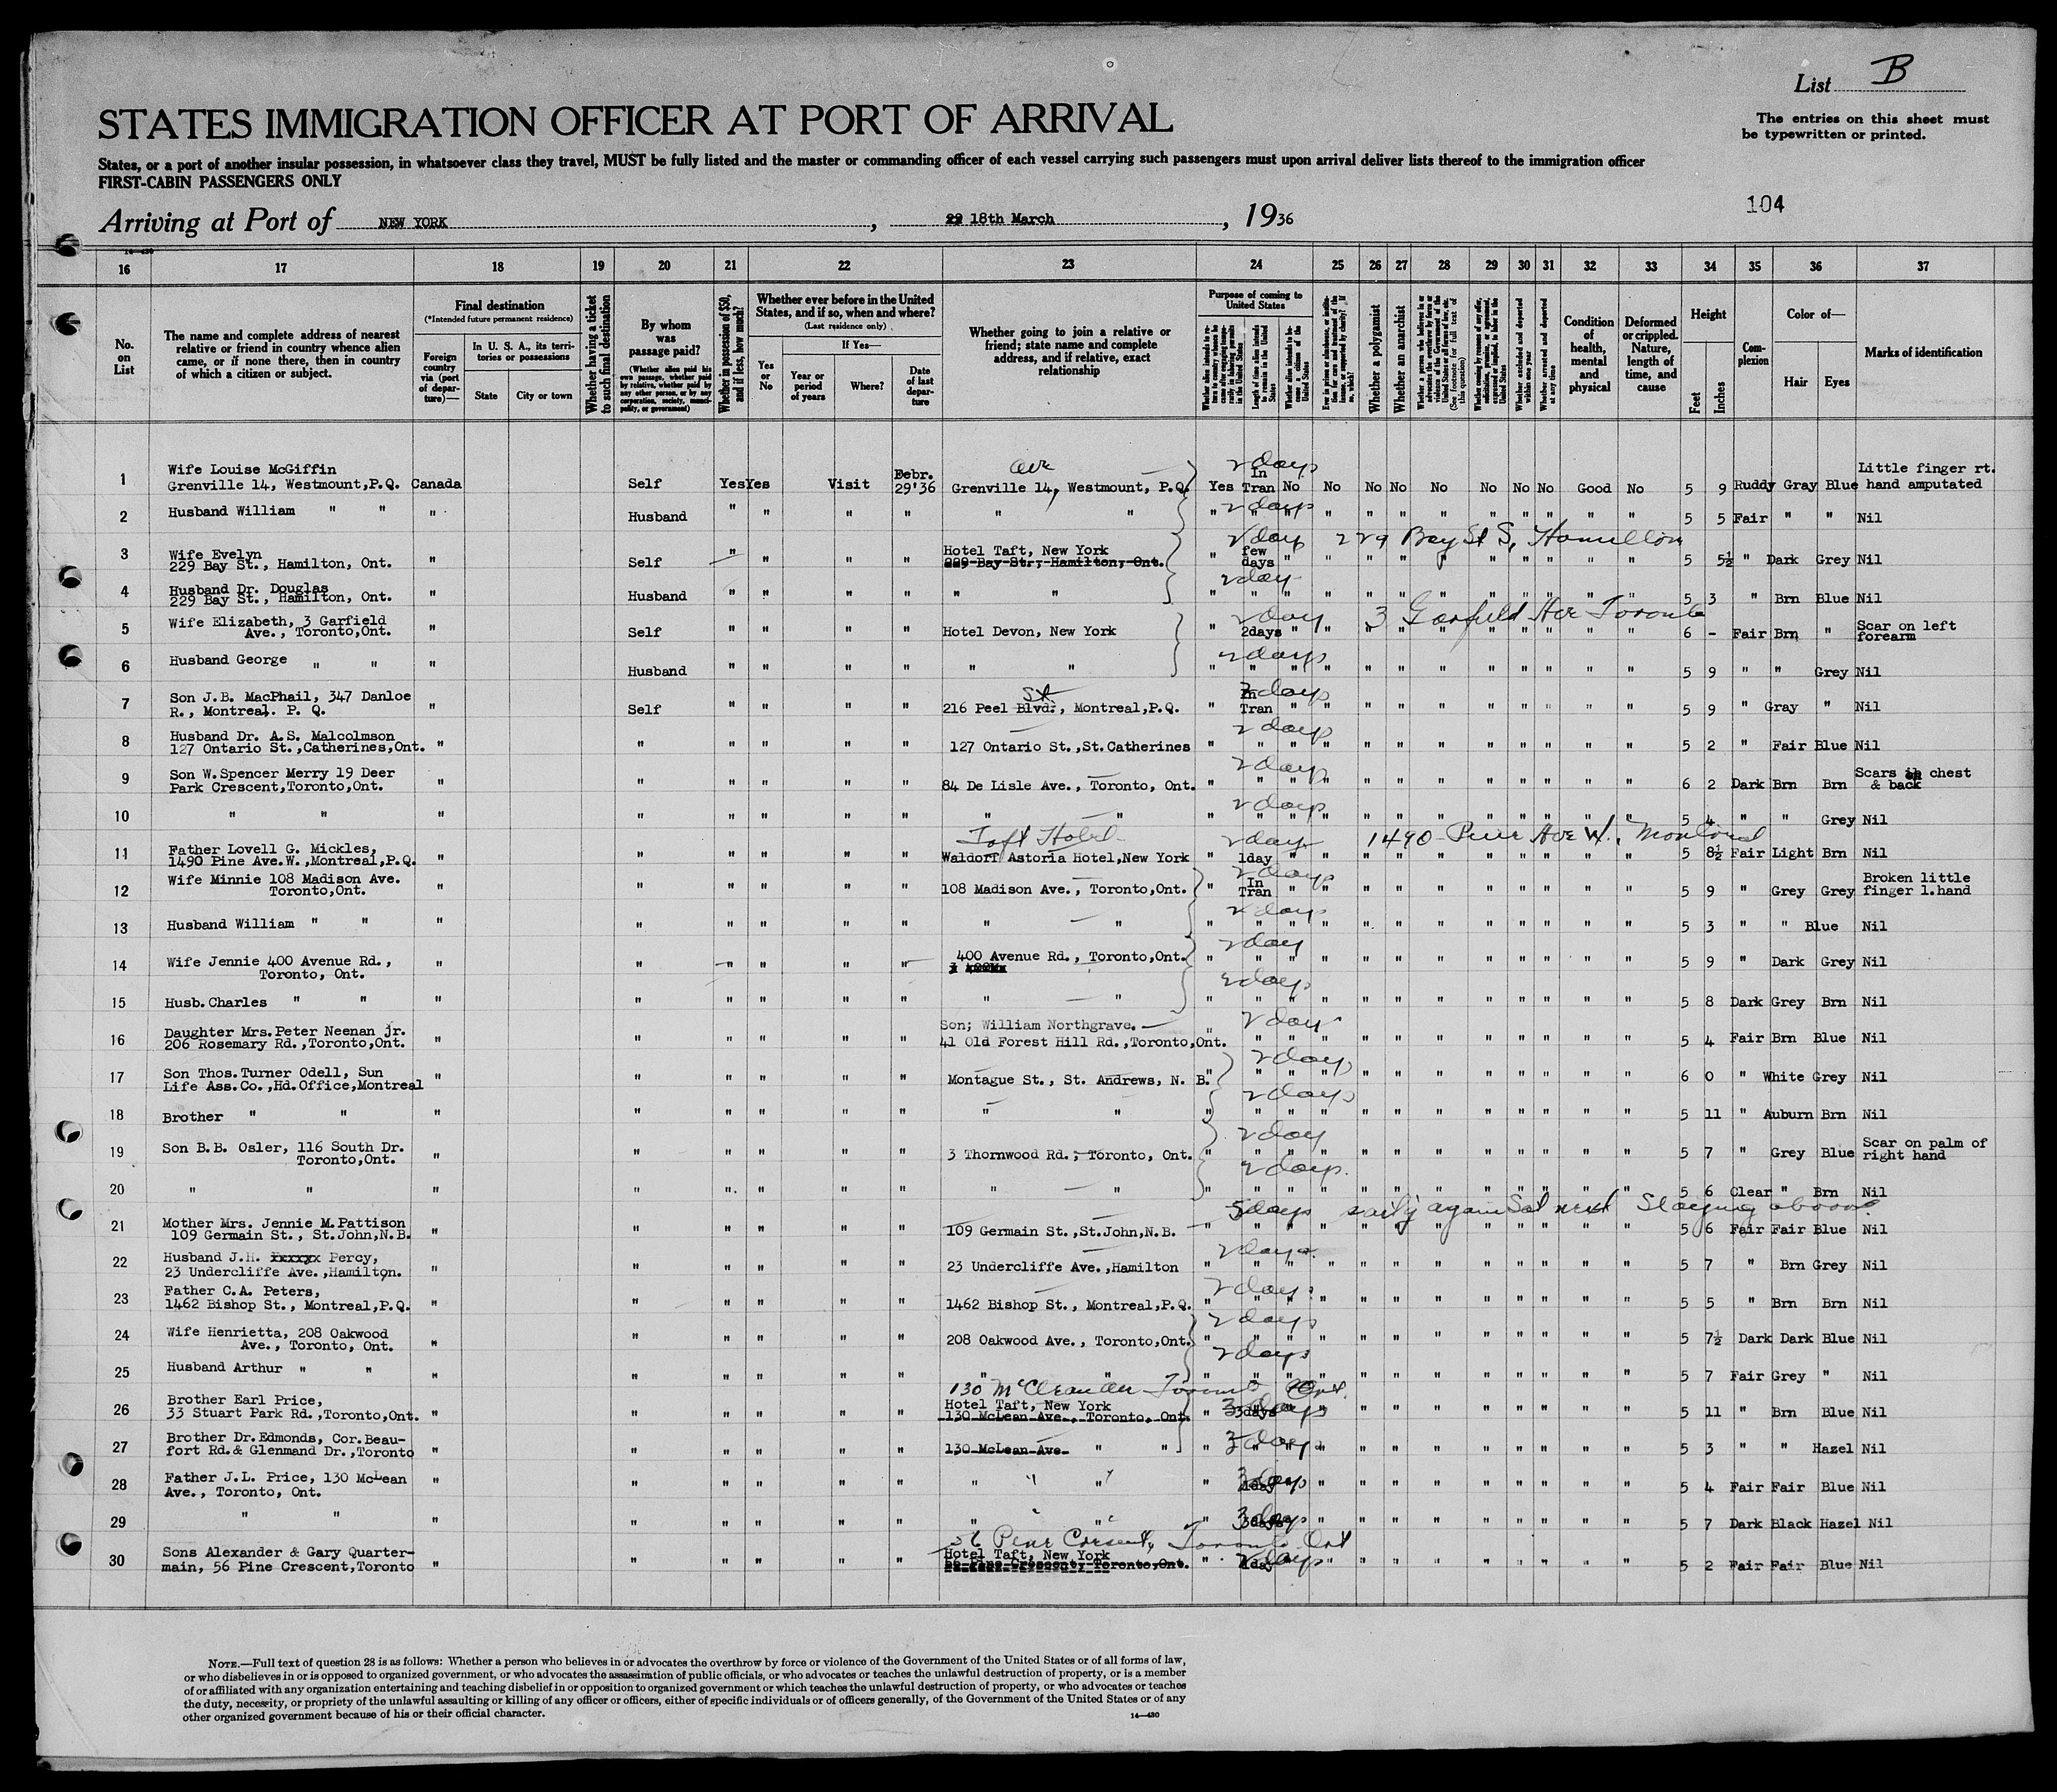 List B
STATES IMMIGRATION OFFICER AT PORT OF ARRIVAL
The entries on this sheet must
be typewritten or printed.
States, or a port of another insular possession, in whatsoever class they travel, MUST be fully listed and the master or commanding officer of each vessel carrying such passengers must upon arrival deliver lists thereof to the immigration officer
FIRST-CABIN PASSENGERS ONLY
104
Arriving at Port of NEW YORK, 18th March, 1936
16 17 18 19 20 21 22 23 24 25 26 27 28 29 30 31 32 33 34 35 36 37
No. on List
The name and complete address of nearest relative or friend in country whence alien came, or if none there, then in country of which a citizen or subject.
Final destination
(*Intended future permanent residence)
Foreign country via (port of departure)—
In U. S. A., its territories or possessions
State
City or town
Whether having a ticket to such final destination
By whom was passage paid?
(Whether alien paid his own passage, whether paid by relative, whether paid by any other person, or by any corporation, society, municipality, or government)
Whether in possession of $50, and if less, how much?
Whether ever before in the United States, and if so, when and where?
(Last residence only)
Yes or No
If Yes—
Year or period of years
Where?
Date of last departure
Whether going to join a relative or friend; state name and complete address, and if relative, exact relationship
Purpose of coming to United States
Length of time alien intends to remain in the United States
Whether alien intends to become a citizen of the United States
Whether a polygamist
Whether an anarchist
Condition of health, mental and physical
Deformed or crippled. Nature, length of time, and cause
Height
Feet
Inches
Complexion
Color of—
Hair
Eyes
Marks of identification
1 Wife Louise McGiffin
Grenville 14, Westmount,P.Q. Canada Self Yes Yes Visit Febr. 29'36 Ave Grenville 14, Westmount, P.Q. 2 days Yes In Tran No No No No No No No No Good No 5 9 Ruddy Gray Blue Little finger rt. hand amputated
2 Husband William " " " Husband " " " " " " 2 days " " " " " " " " " " " " 5 5 Fair " " Nil
3 Wife Evelyn
229 Bay St., Hamilton, Ont. " Self " " " " Hotel Taft, New York 229 Bay St., Hamilton, Ont. 2 day 229 Bay St S, Hamilton " few days " " " " " " " " " " 5 5½ " Dark Grey Nil
4 Husband Dr. Douglas
229 Bay St., Hamilton, Ont. " Husband " " " " " " 2 day " " " " " " " " " " " " 5 3 " Brn Blue Nil
5 Wife Elizabeth, 3 Garfield
Ave., Toronto,Ont. " Self " " " " Hotel Devon, New York 2 day 3 Garfield Ave Toronto " 2days " " " " " " " " " " 6 - Fair Brn " Scar on left forearm
6 Husband George " " " Husband " " " " " " 2 days " " " " " " " " " " " " 5 9 " " Grey Nil
7 Son J.B. MacPhail, 347 Danloe
R., Montreal. P. Q. " Self " " " " St 216 Peel Blvd., Montreal,P.Q. 2 days " In Tran " " " " " " " " " " 5 9 " Gray " Nil
8 Husband Dr. A.S. Malcolmson
127 Ontario St.,Catherines,Ont. " " " " " " 127 Ontario St.,St.Catherines 2 days " " " " " " " " " " " " 5 2 " Fair Blue Nil
9 Son W.Spencer Merry 19 Deer
Park Crescent,Toronto,Ont. " " " " " " 84 De Lisle Ave., Toronto, Ont. 2 days " " " " " " " " " " " " 6 2 Dark Brn Brn Scars on chest & back
10 " " " " " " " " " " 2 days " " " " " " " " " " " " 5 4 " " Grey Nil
11 Father Lovell G. Mickles,
1490 Pine Ave.W.,Montreal,P.Q. " " " " " " Taft Hotel Waldorf Astoria Hotel,New York 2 day 1490 Pine Ave W., Montreal " 1day " " " " " " " " " " 5 8½ Fair Light Brn Nil
12 Wife Minnie 108 Madison Ave.
Toronto,Ont. " " " " " " 108 Madison Ave., Toronto,Ont. 2 days " In Tran " " " " " " " " " " 5 9 " Grey Grey Broken little finger l.hand
13 Husband William " " " " " " " " " " 2 days " " " " " " " " " " " " 5 3 " " Blue Nil
14 Wife Jennie 400 Avenue Rd.,
Toronto, Ont. " " " " " " 400 Avenue Rd., Toronto,Ont. 2 day " " " " " " " " " " " " 5 9 " Dark Grey Nil
15 Husb.Charles " " " " " " " " " " 2 days " " " " " " " " " " " " 5 8 Dark Grey Brn Nil
16 Daughter Mrs.Peter Neenan jr.
206 Rosemary Rd.,Toronto,Ont. " " " " " " Son; William Northgrave. 41 Old Forest Hill Rd.,Toronto,Ont. 2 day " " " " " " " " " " " " 5 4 Fair Brn Blue Nil
17 Son Thos.Turner Odell, Sun
Life Ass.Co.,Hd.Office,Montreal " " " " " " Montague St., St. Andrews, N. B. 2 days " " " " " " " " " " " " 6 0 " White Grey Nil
18 Brother " " " " " " " " " " 2 days " " " " " " " " " " " " 5 11 " Auburn Brn Nil
19 Son B.B. Osler, 116 South Dr.
Toronto,Ont. " " " " " " 3 Thornwood Rd., Toronto, Ont. 2 day " " " " " " " " " " " " 5 7 " Grey Blue Scar on palm of right hand
20 " " " " " " " " " " 2 days. " " " " " " " " " " " " 5 6 Clear " Brn Nil
21 Mother Mrs. Jennie M.Pattison
109 Germain St., St.John,N.B. " " " " " " 109 Germain St.,St.John,N.B. 5 days again Sat next Staying aboard " " " " " " " " " " " " 5 6 Fair Fair Blue Nil
22 Husband J.H. Percy,
23 Undercliffe Ave.,Hamilton. " " " " " " 23 Undercliffe Ave.,Hamilton 2 days " " " " " " " " " " " " 5 7 " Brn Grey Nil
23 Father C.A. Peters,
1462 Bishop St., Montreal,P.Q. " " " " " " 1462 Bishop St., Montreal,P.Q. 2 days " " " " " " " " " " " " 5 5 " Brn Brn Nil
24 Wife Henrietta, 208 Oakwood
Ave., Toronto, Ont. " " " " " " 208 Oakwood Ave., Toronto,Ont. 2 days " " " " " " " " " " " " 5 7½ Dark Dark Blue Nil
25 Husband Arthur " " " " " " " " " " 2 days " " " " " " " " " " " " 5 7 Fair Grey " Nil
26 Brother Earl Price,
33 Stuart Park Rd.,Toronto,Ont. " " " " " " 130 McClean Av Toronto Ont. Hotel Taft, New York 130 McLean Ave., Toronto, Ont. " 3 days " " " " " " " " " " 5 11 " Brn Blue Nil
27 Brother Dr.Edmonds, Cor.Beau-
fort Rd.& Glenmand Dr.,Toronto " " " " " " 130 McLean Ave. " " " 3 days " " " " " " " " " " 5 3 " " Hazel Nil
28 Father J.L. Price, 130 McLean
Ave., Toronto, Ont. " " " " " " " " " " 3 days " " " " " " " " " " 5 4 Fair Fair Blue Nil
29 " " " " " " " " " " " " 3 days " " " " " " " " " " 5 7 Dark Black Hazel Nil
30 Sons Alexander & Gary Quarter-
main, 56 Pine Crescent,Toronto " " " " " " 56 Pine Cresent, Toronto Ont Hotel Taft, New York 56 Pine Crescent, Toronto,Ont. " 2 days " " " " " " " " " " 5 2 Fair Fair Blue Nil
NOTE.—Full text of question 28 is as follows: Whether a person who believes in or advocates the overthrow by force or violence of the Government of the United States or of all forms of law,
or who disbelieves in or is opposed to organized government, or who advocates the assassination of public officials, or who advocates or teaches the unlawful destruction of property, or is a member
of or affiliated with any organization entertaining and teaching disbelief in or opposition to organized government or which teaches the unlawful destruction of property, or who advocates or teaches
the duty, necessity, or propriety of the unlawful assaulting or killing of any officer or officers, either of specific individuals or of officers generally, of the Government of the United States or of any
other organized government because of his or their official character.
14—430